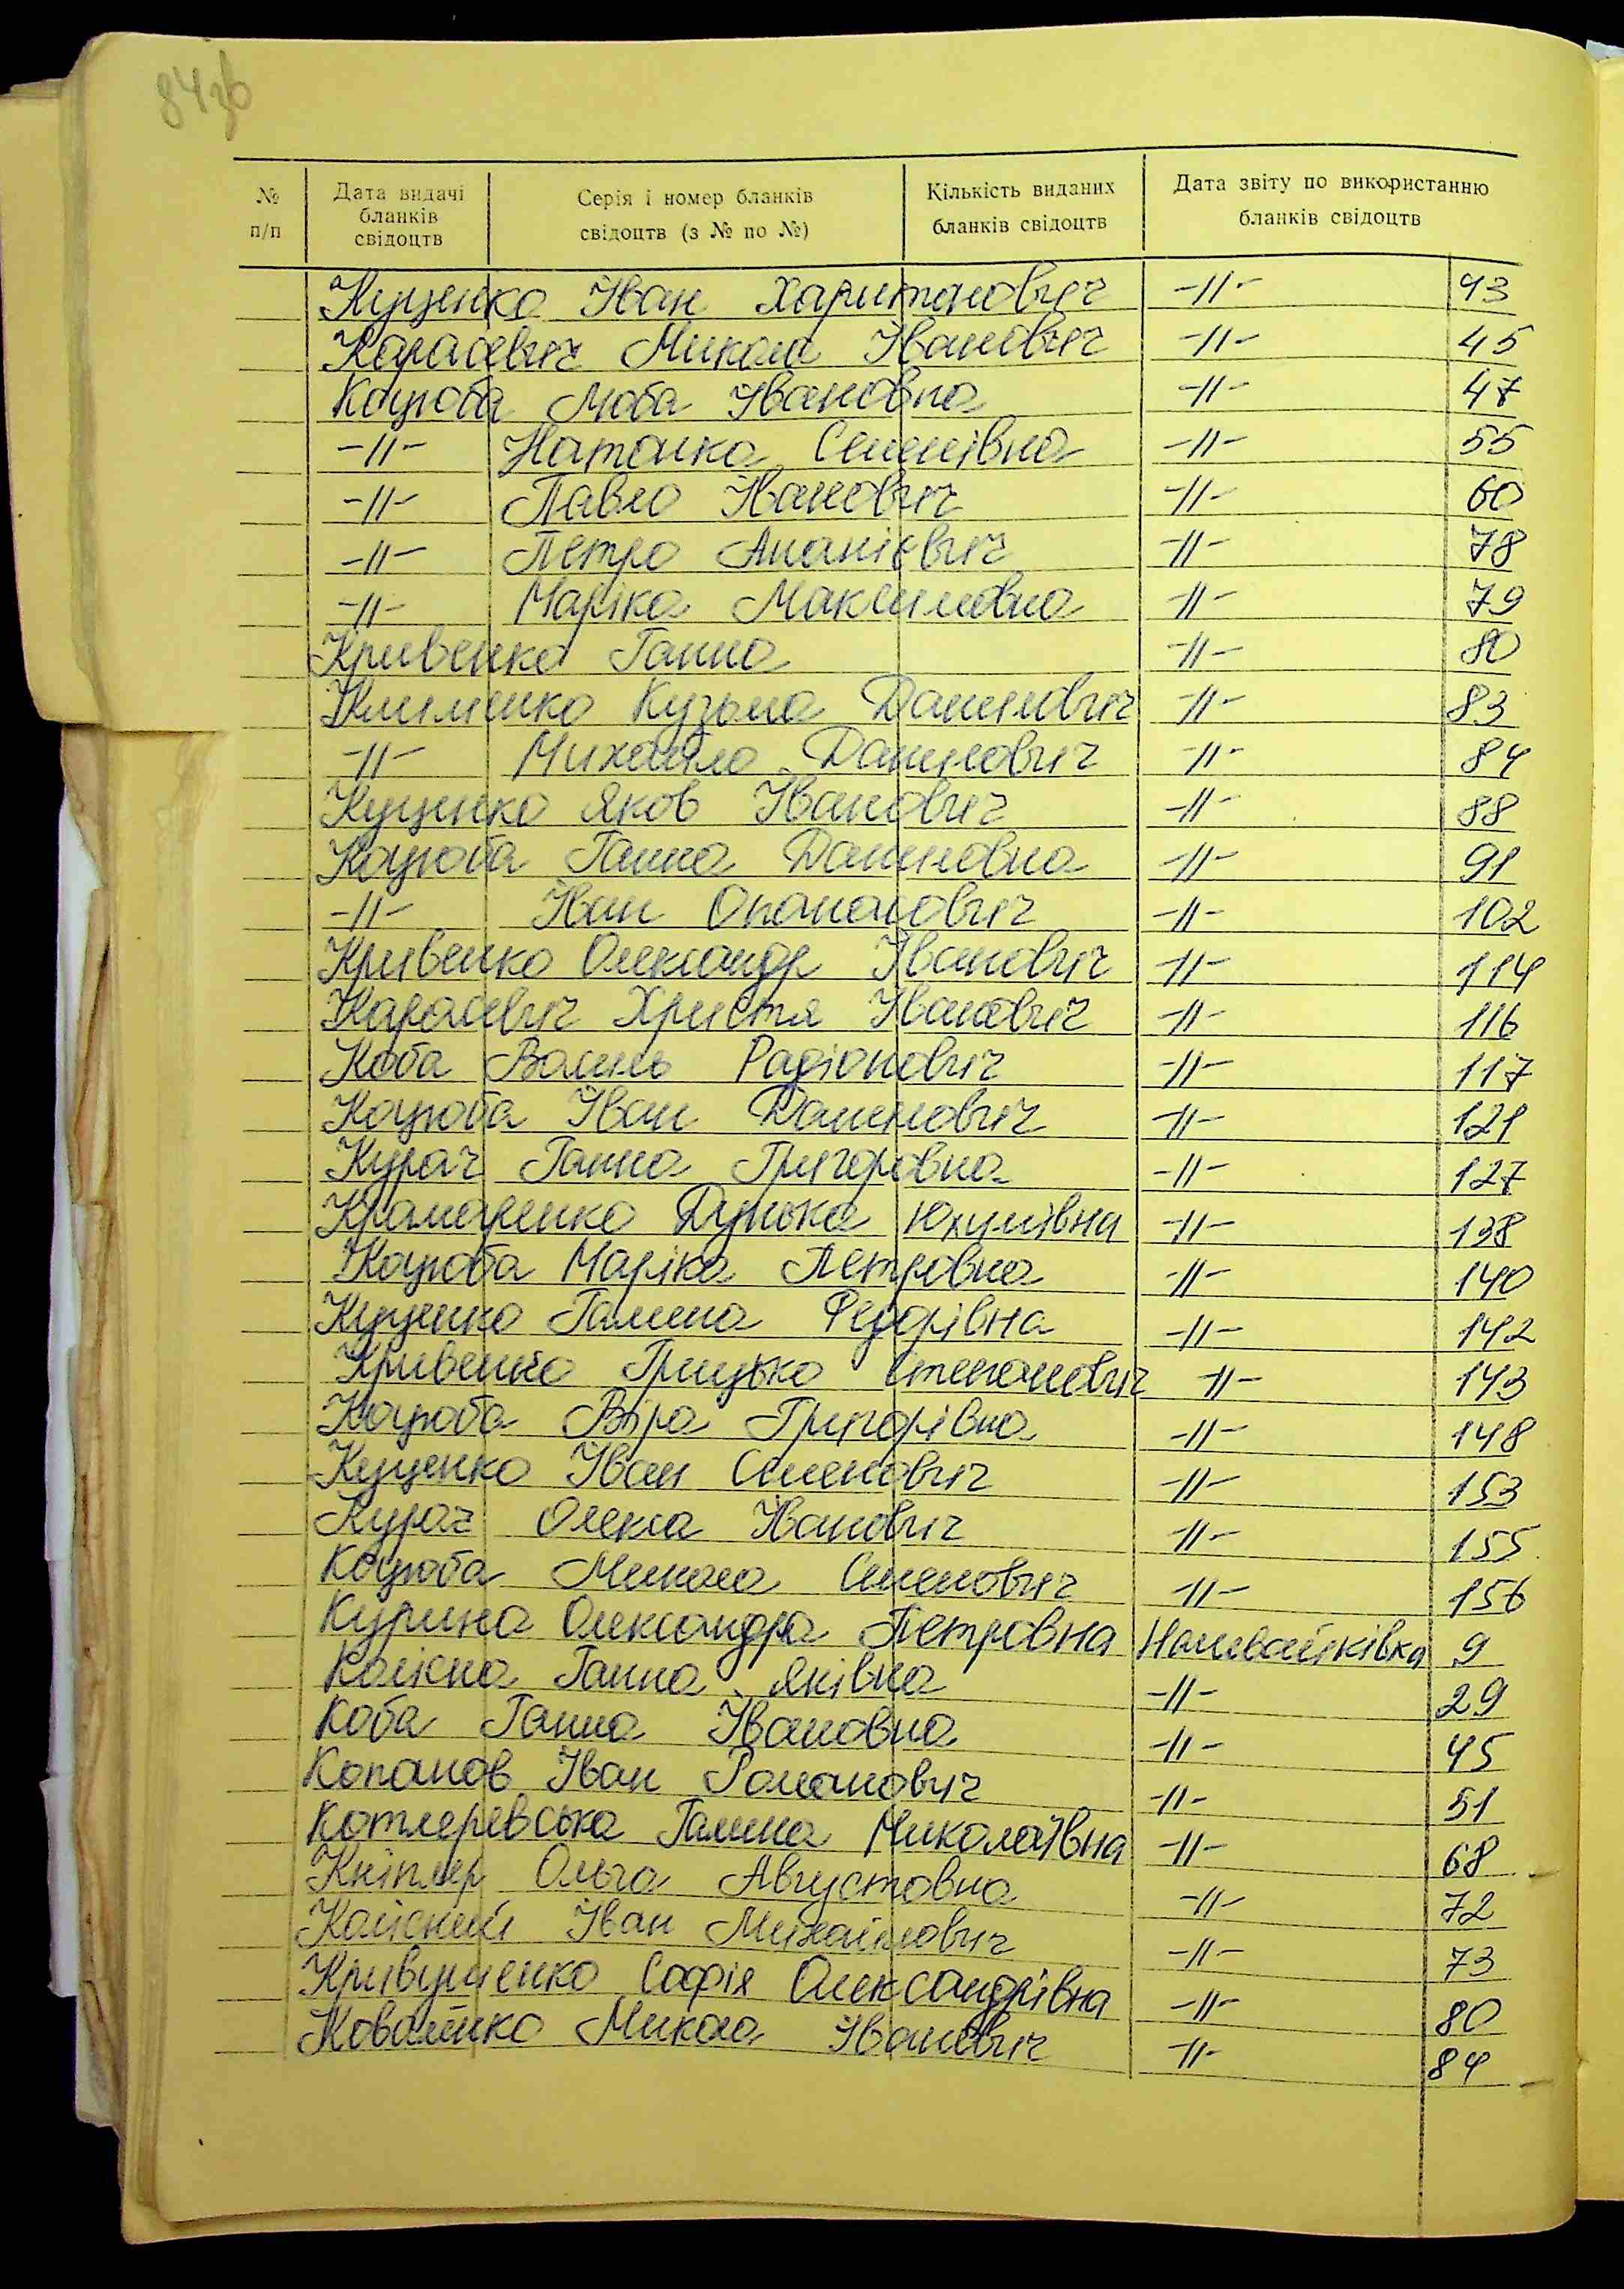 84зв
№ п/п Дата видачі бланків свідоцтв Серія і номер бланків свідоцтв (з № по №) Кількість виданих бланків свідоцтв Дата звіту по використанню бланків свідоцтв
Куценко Іван Харитонович -//- 43
Карасевич Микола Іванович -//- 45
Коцюба Люба Івановна -//- 47
-//- Наталка Семенівна -//- 55
-//- Павло Іванович -//- 60
-//- Петро Ананієвич -//- 78
-//- Маріка Максимовна -//- 79
Кривенко Ганна -//- 80
Клименко Кузьма Данилович -//- 83
-//- Михайло Данилович -//- 84
Куценко Яков Іванович -//- 88
Коцюба Ганна Даниловна -//- 91
-//- Іван Опанасович -//- 102
Кривенко Олександр Іванович -//- 114
Карасевич Христя Іванович -//- 116
Коба Василь Радіонович -//- 117
Коцюба Іван Данилович -//- 121
Курач Ганна Григоровна -//- 127
Крамаренко Дунька Юхумівна -//- 138
Коцюба Маріка Петровна -//- 140
Куценко Галина Федорівна -//- 142
Кривенко Грицько Степанович -//- 143
Коцюба Віра Григорівна -//- 148
Куценко Іван Семенович -//- 153
Курач Олекса Іванович -//- 155
Коцюба Микола Семенович -//- 156
Курина Олександра Петровна Наливайківка 9
Колісна Ганна Яківна -//- 29
Коба Ганна Івановна -//- 45
Копанов Іван Романович -//- 51
Котлеревська Галина Миколаївна -//- 68
Кніплер Ольга Августовна -//- 72
Колісний Іван Михайлович -//- 73
Кривушенко Софія Олександрівна -//- 80
Ковалйко Микола Іванович -//- 84